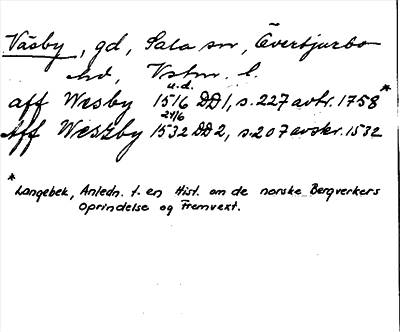 Väsby, gd, Sala sn, Övertjurbo
hd, Vstm. l.
u.d.
aff Wesby 1516 DD1, s. 227 avtr. 1758*
24/6
Aff Weszby 1532 DD2, s. 207 avskr. 1532
* Langebek, Anledn. t. en Hist. om de norske Bergverkers
Oprindelse og Fremvext.